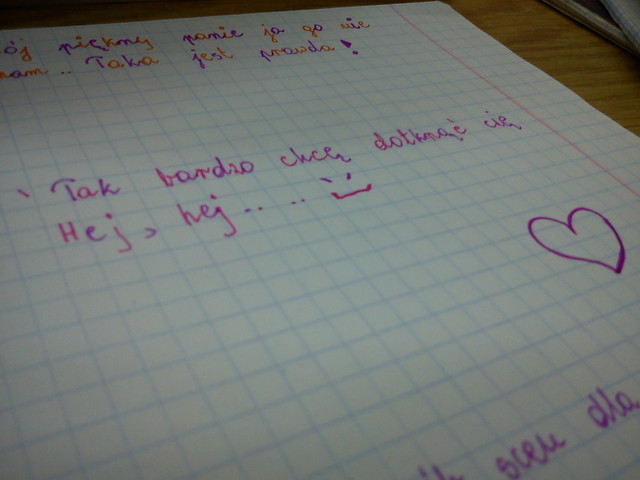 piękny panie ja go nie
mam.. Taka jest prawda!
Tak bardzo chcę dotknąć cię
Hej, hej.. ..
sceu dla